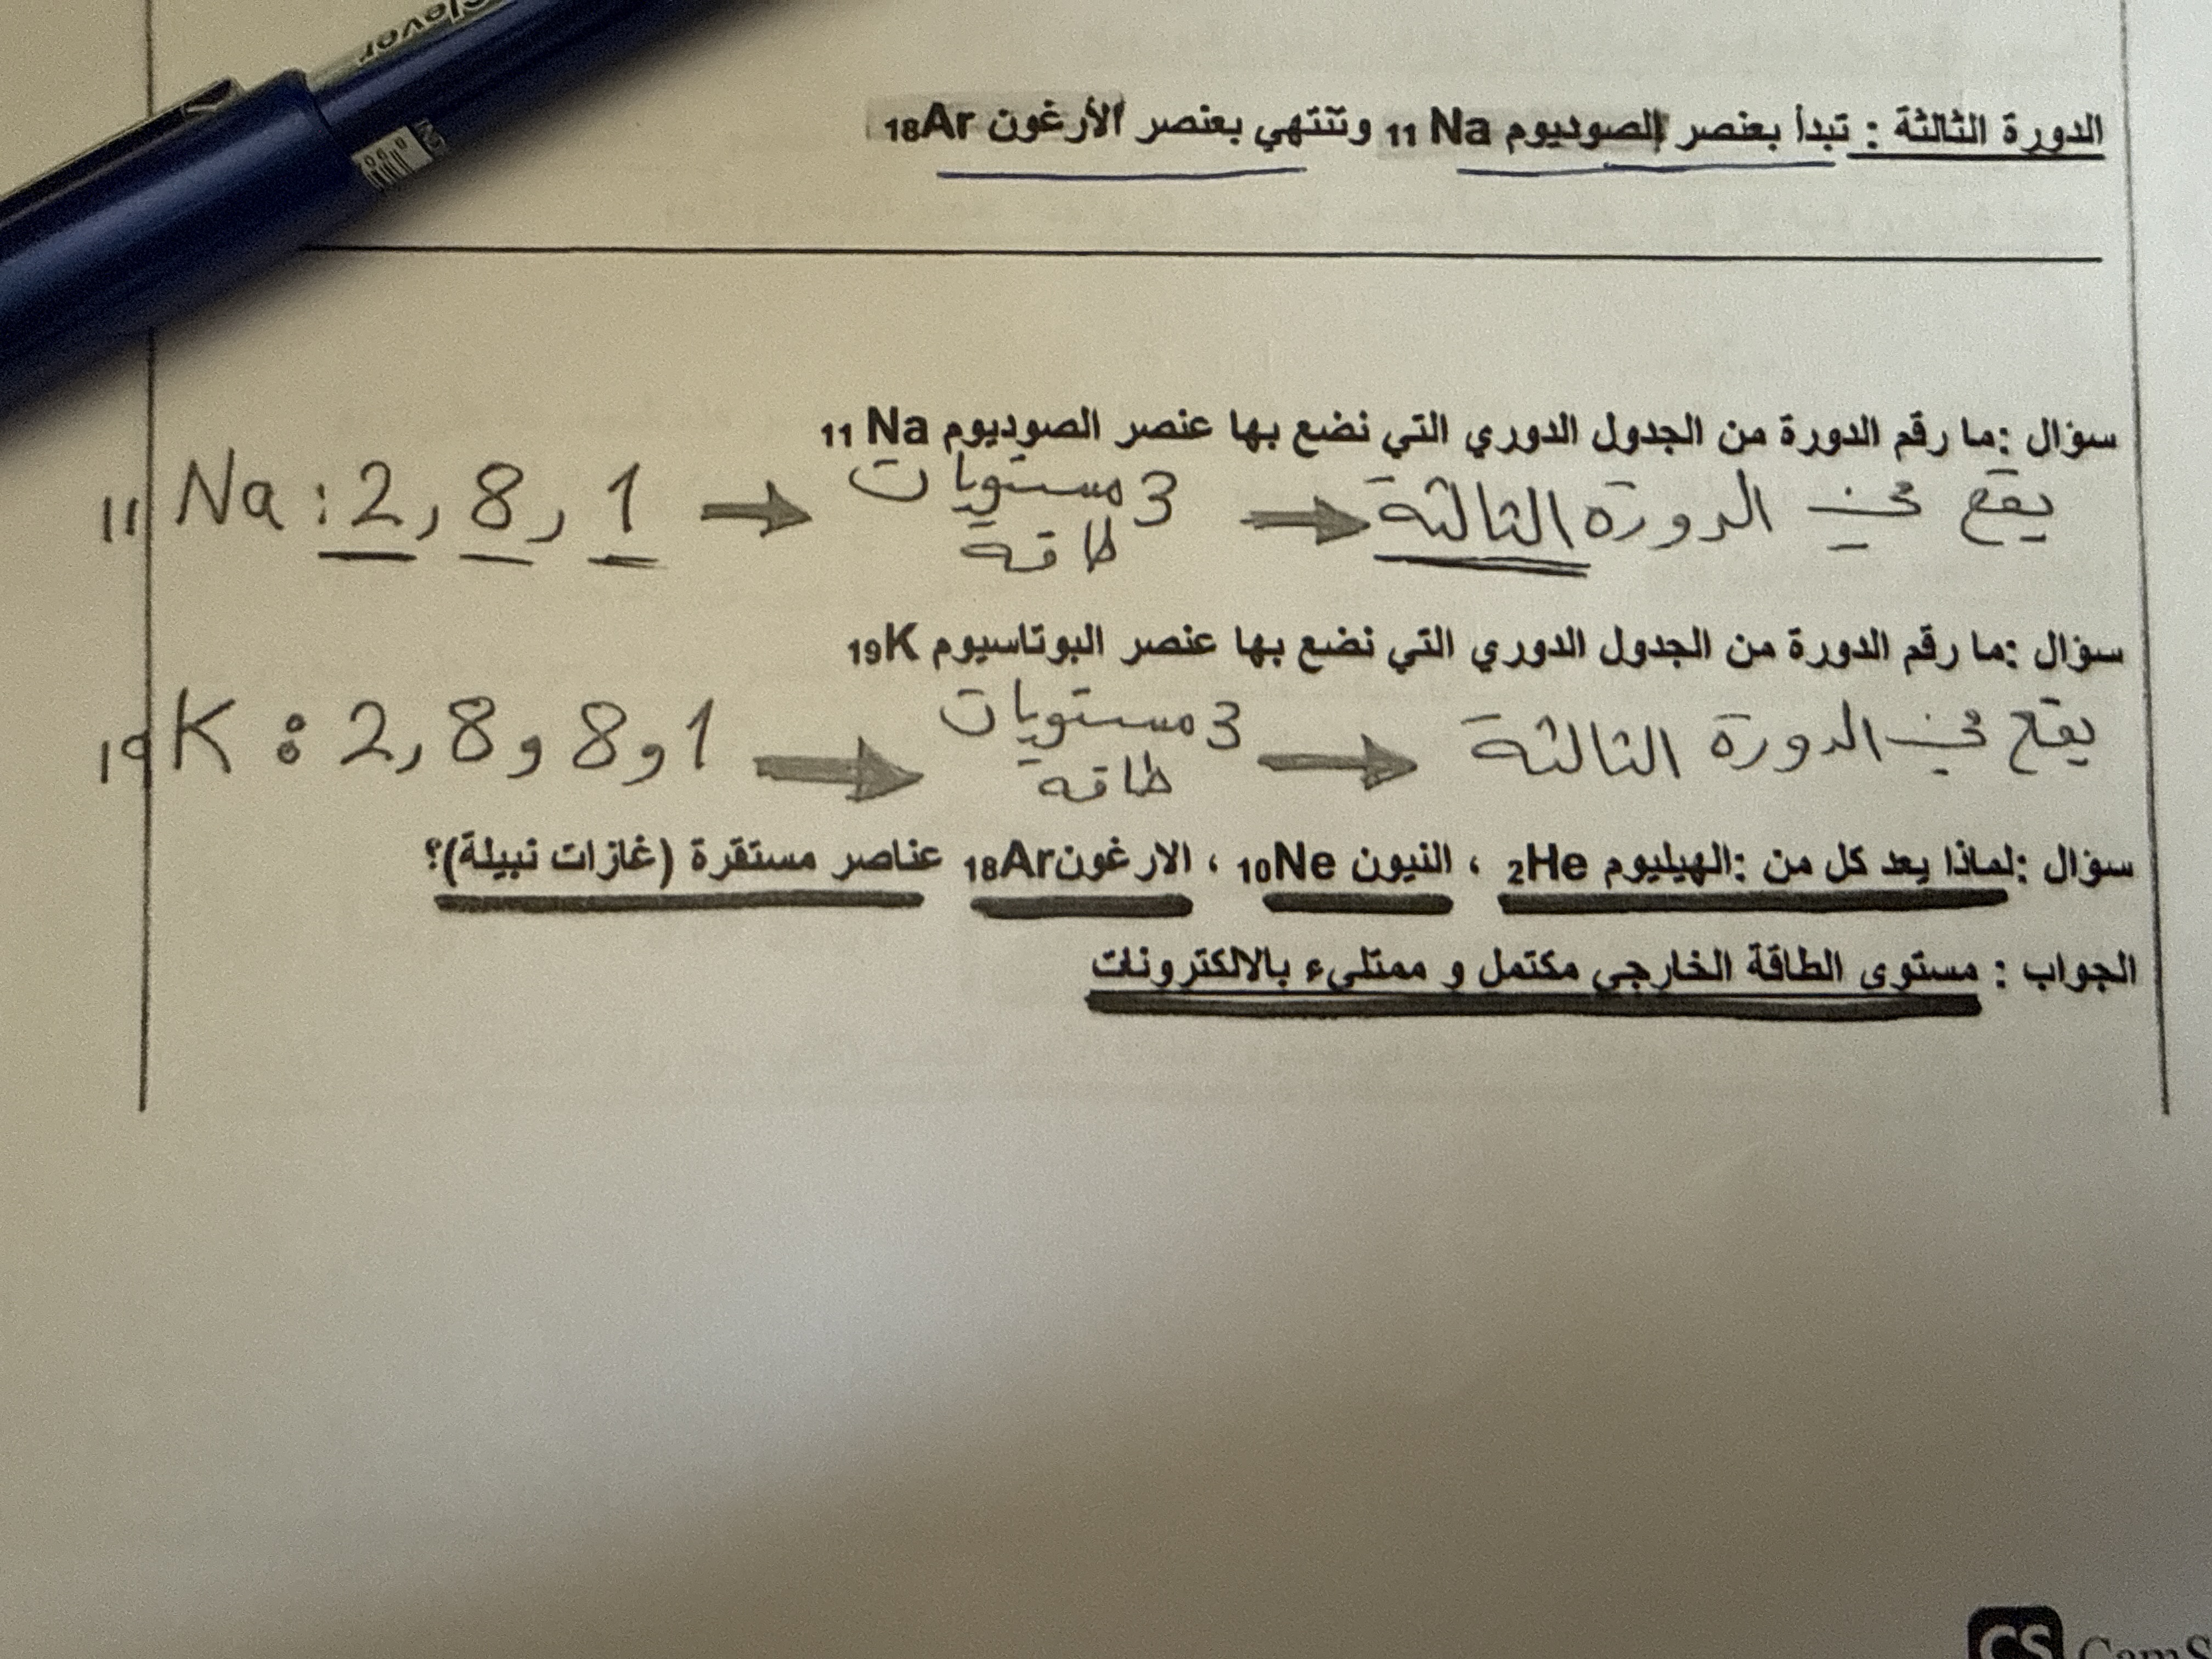 clever
الدورة الثالثة : تبدأ بعنصر الصوديوم 11 Na وتنتهي بعنصر الأرغون 18Ar
سؤال :ما رقم الدورة من الجدول الدوري التي نضع بها عنصر الصوديوم 11 Na
11 Na : 2, 8, 1 → 3 مستويات طاقة → يقع في الدورة الثالثة
سؤال :ما رقم الدورة من الجدول الدوري التي نضع بها عنصر البوتاسيوم 19K
19 K : 2, 8, 8, 1 → 3 مستويات طاقه → يقع في الدورة الثالثة
سؤال :لماذا يعد كل من :الهيليوم 2He ، النيون 10Ne ، الارغون18Ar عناصر مستقرة (غازات نبيلة)؟
الجواب : مستوى الطاقة الخارجي مكتمل و ممتلىء بالالكترونات
CS CamS